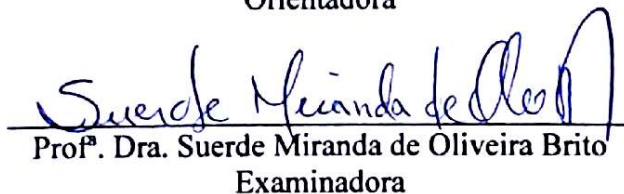 Orientadora
Suerde Miranda de
Profª. Dra. Suerde Miranda de Oliveira Brito
Examinadora